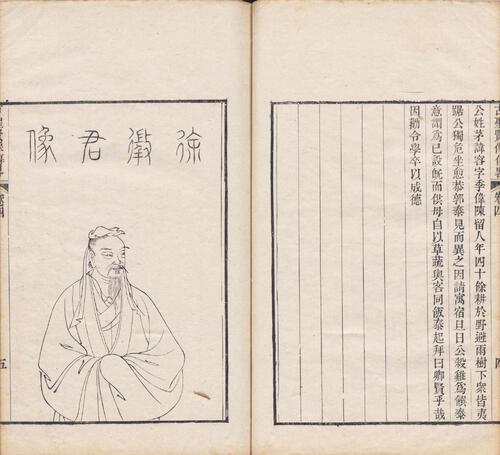 古聖賢像傳畧 卷四
公姓茅諱容字季偉陳留人年四十餘耕於野避雨樹下衆皆夷
踞公獨危坐愈恭郭泰見而異之因請寓宿旦日公殺雞爲饌泰
意謂爲已設旣而供母自以草蔬與客同飯泰起拜曰卿賢乎哉
因勸令學卒以成德
四
徐徵君像
卷四
五